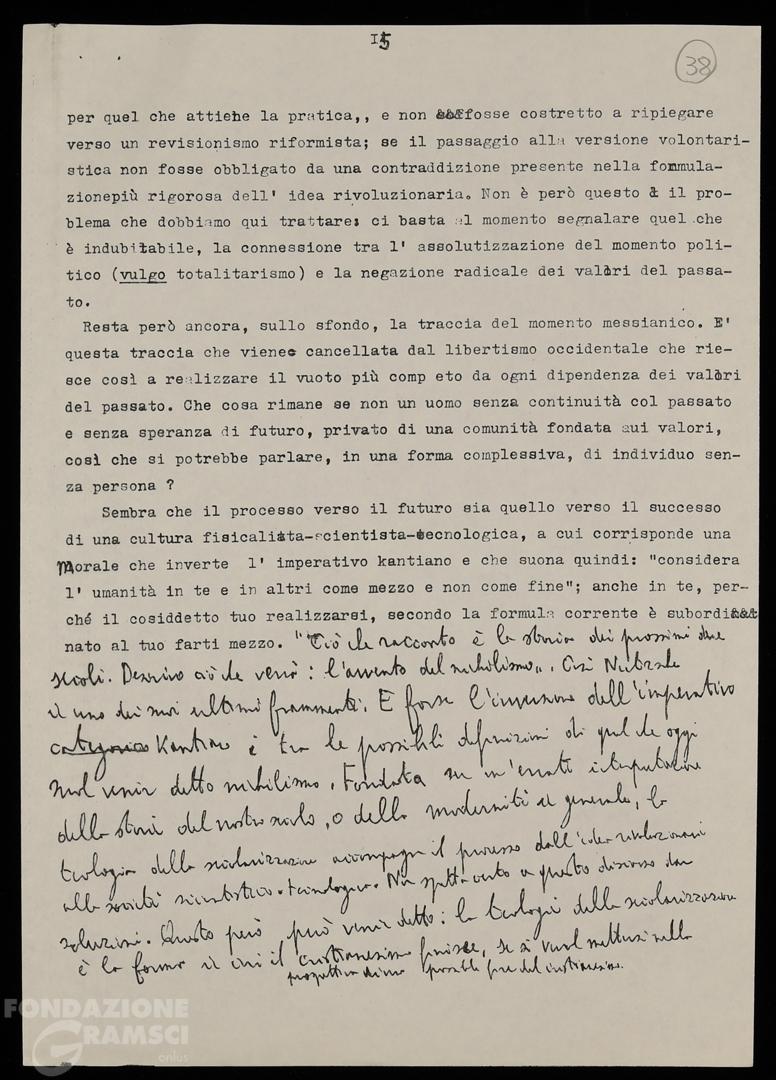 15
38
per quel che attiene la pratica,, e non &&&fosse costretto a ripiegare
verso un revisionismo riformista; se il passaggio alla versione volontari-
stica non fosse obbligato da una contraddizione presente nella formula-
zionepiù rigorosa dell' idea rivoluzionaria. Non è però questo & il pro-
blema che dobbiamo qui trattare: ci basta al momento segnalare quel che
è indubitabile, la connessione tra l' assolutizzazione del momento poli-
tico (vulgo totalitarismo) e la negazione radicale dei valori del passa-
to.
Resta però ancora, sullo sfondo, la traccia del momento messianico. E'
questa traccia che viene cancellata dal libertismo occidentale che rie-
sce così a realizzare il vuoto più comp eto da ogni dipendenza dei valori
del passato. Che cosa rimane se non un uomo senza continuità col passato
e senza speranza di futuro, privato di una comunità fondata sui valori,
così che si potrebbe parlare, in una forma complessiva, di individuo sen-
za persona ?
Sembra che il processo verso il futuro sia quello verso il successo
di una cultura fisicalista-scientista-tecnologica, a cui corrisponde una
Morale che inverte l' imperativo kantiano e che suona quindi: "considera
l' umanità in te e in altri come mezzo e non come fine"; anche in te, per-
ché il cosiddetto tuo realizzarsi, secondo la formula corrente è subordi&&&
nato al tuo farti mezzo. "Ciò che racconto è la storia dei prossimi due
secoli. Descrivo ciò che verrà: l'avvento del nichilismo". Così Nietzsche
in uno dei suoi ultimi frammenti. E forse l'inversione dell'imperativo
categorico Kantiano è tra le possibili definizioni di quel che oggi
suol venir detto nichilismo. Fondata su un'errata interpretazione
della storia del nostro secolo, o della modernità in generale, la
teologia della secolarizzazione accompagna il processo dall'idea rivoluzionaria
alla società scientistico-tecnologica. Non spetta certo a questo discorso dar
soluzioni. Questo però può venir detto: la teologia della secolarizzazione
è la forma in cui il cristianesimo finisce, se si vuol mettersi nella
prospettiva di una possibile fine del cristianesimo.
FONDAZIONE
GRAMSCI
onlus